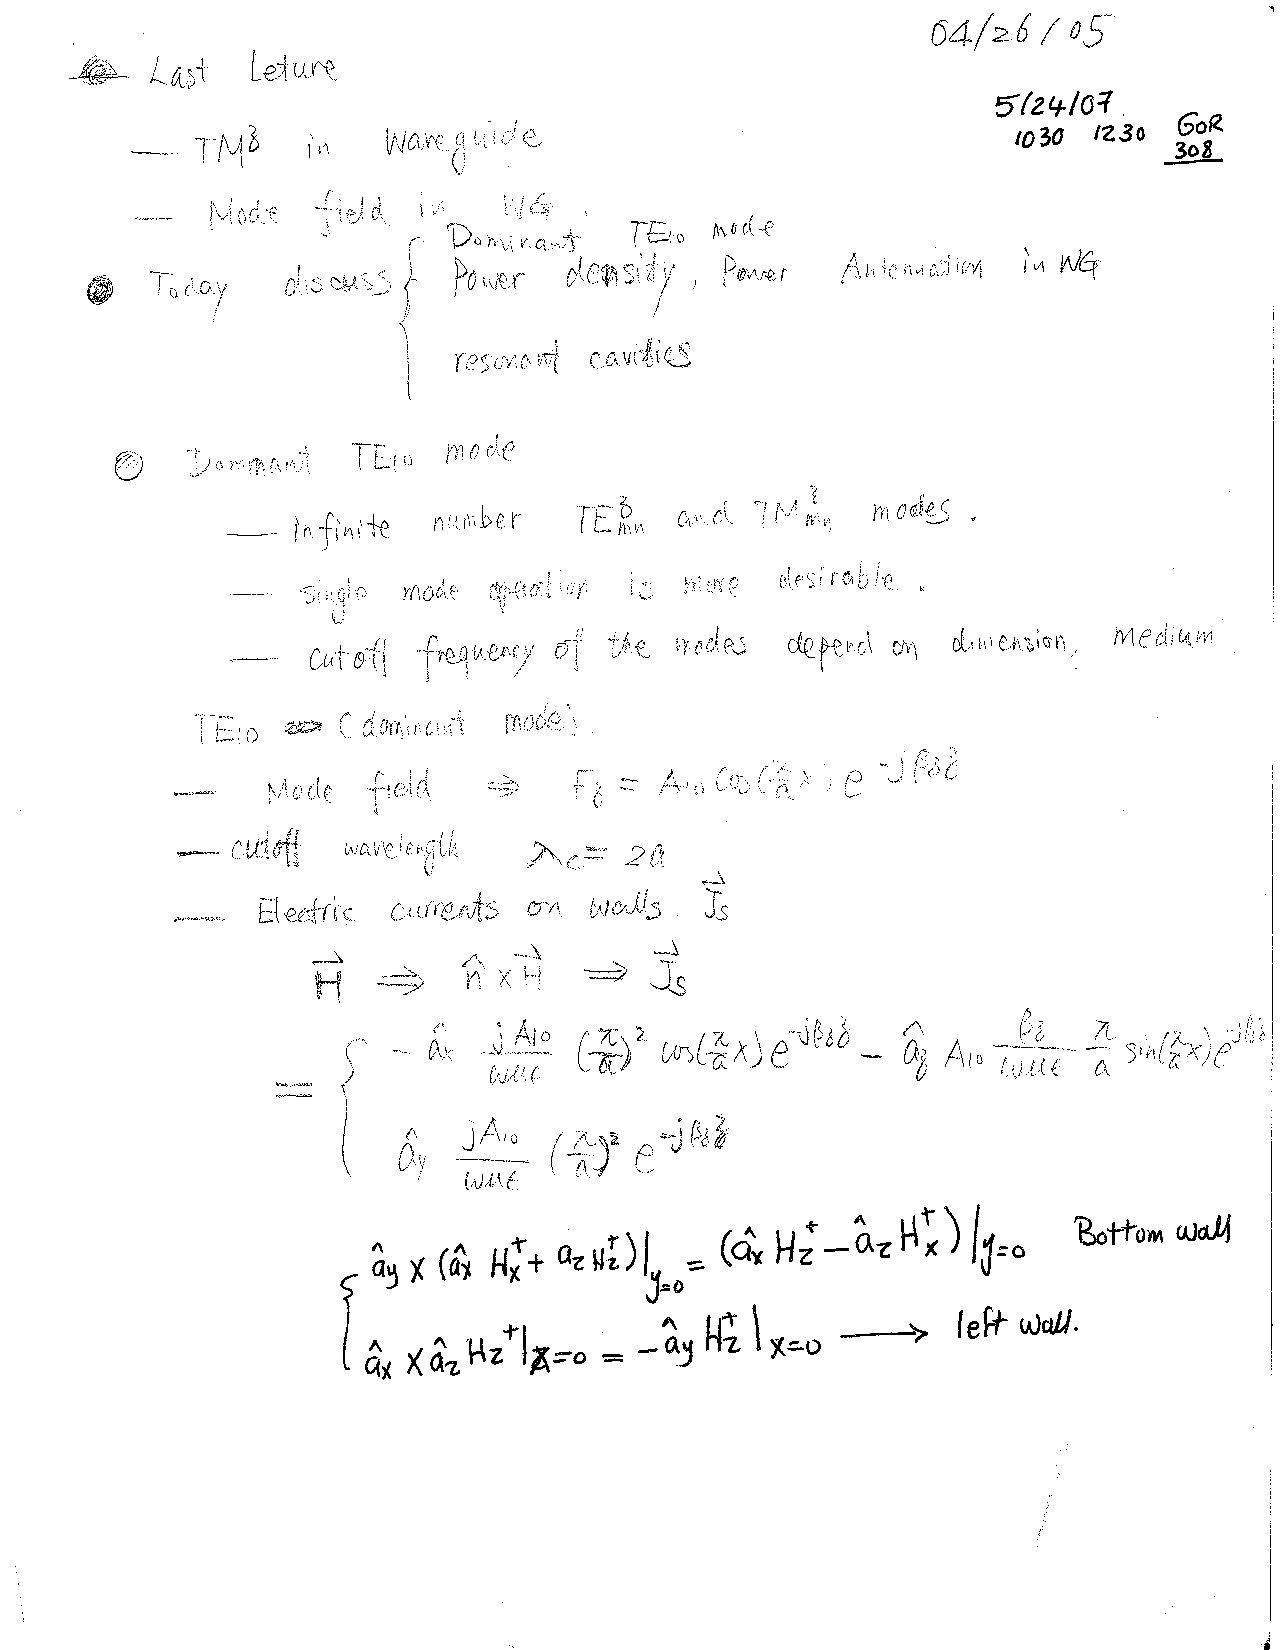 04/26/05
Last Leture
5/24/07
1030 1230 GOR 308
— TM^z in Waveguide
— Mode field in WG.
Dominant TE₁₀ mode
Today discuss { Power density, Power Attenuation in WG
resonant cavities
Dominant TE₁₀ mode
— Infinite number TE^z_mn and TM^z_mn modes.
— single mode operation is more desirable.
— cutoff frequency of the modes depend on dimension, medium
TE₁₀ (dominant mode).
— Mode field ⇒ F_z = A₁₀ Cos(π/a x) e^{-jβ_z z}
— cutoff wavelength λ_c = 2a
— Electric currents on walls. J⃗_s
H⃗ ⇒ n̂ × H⃗ ⇒ J⃗_s
= { -â_x jA₁₀/ωμε (π/a)² cos(π/a x) e^{-jβ_z z} - â_z A₁₀ β_z/ωμε π/a sin(π/a x) e^{-jβ_z z}
â_y jA₁₀/ωμε (π/a)² e^{-jβ_z z}
{ â_y × (â_x H_x^+ + a_z H_z^+)|_{y=0} = (â_x H_z^+ - â_z H_x^+)|_{y=0} Bottom wall
â_x × â_z H_z^+|_{x=0} = -â_y H_z^+|_{x=0} ⟶ left wall.